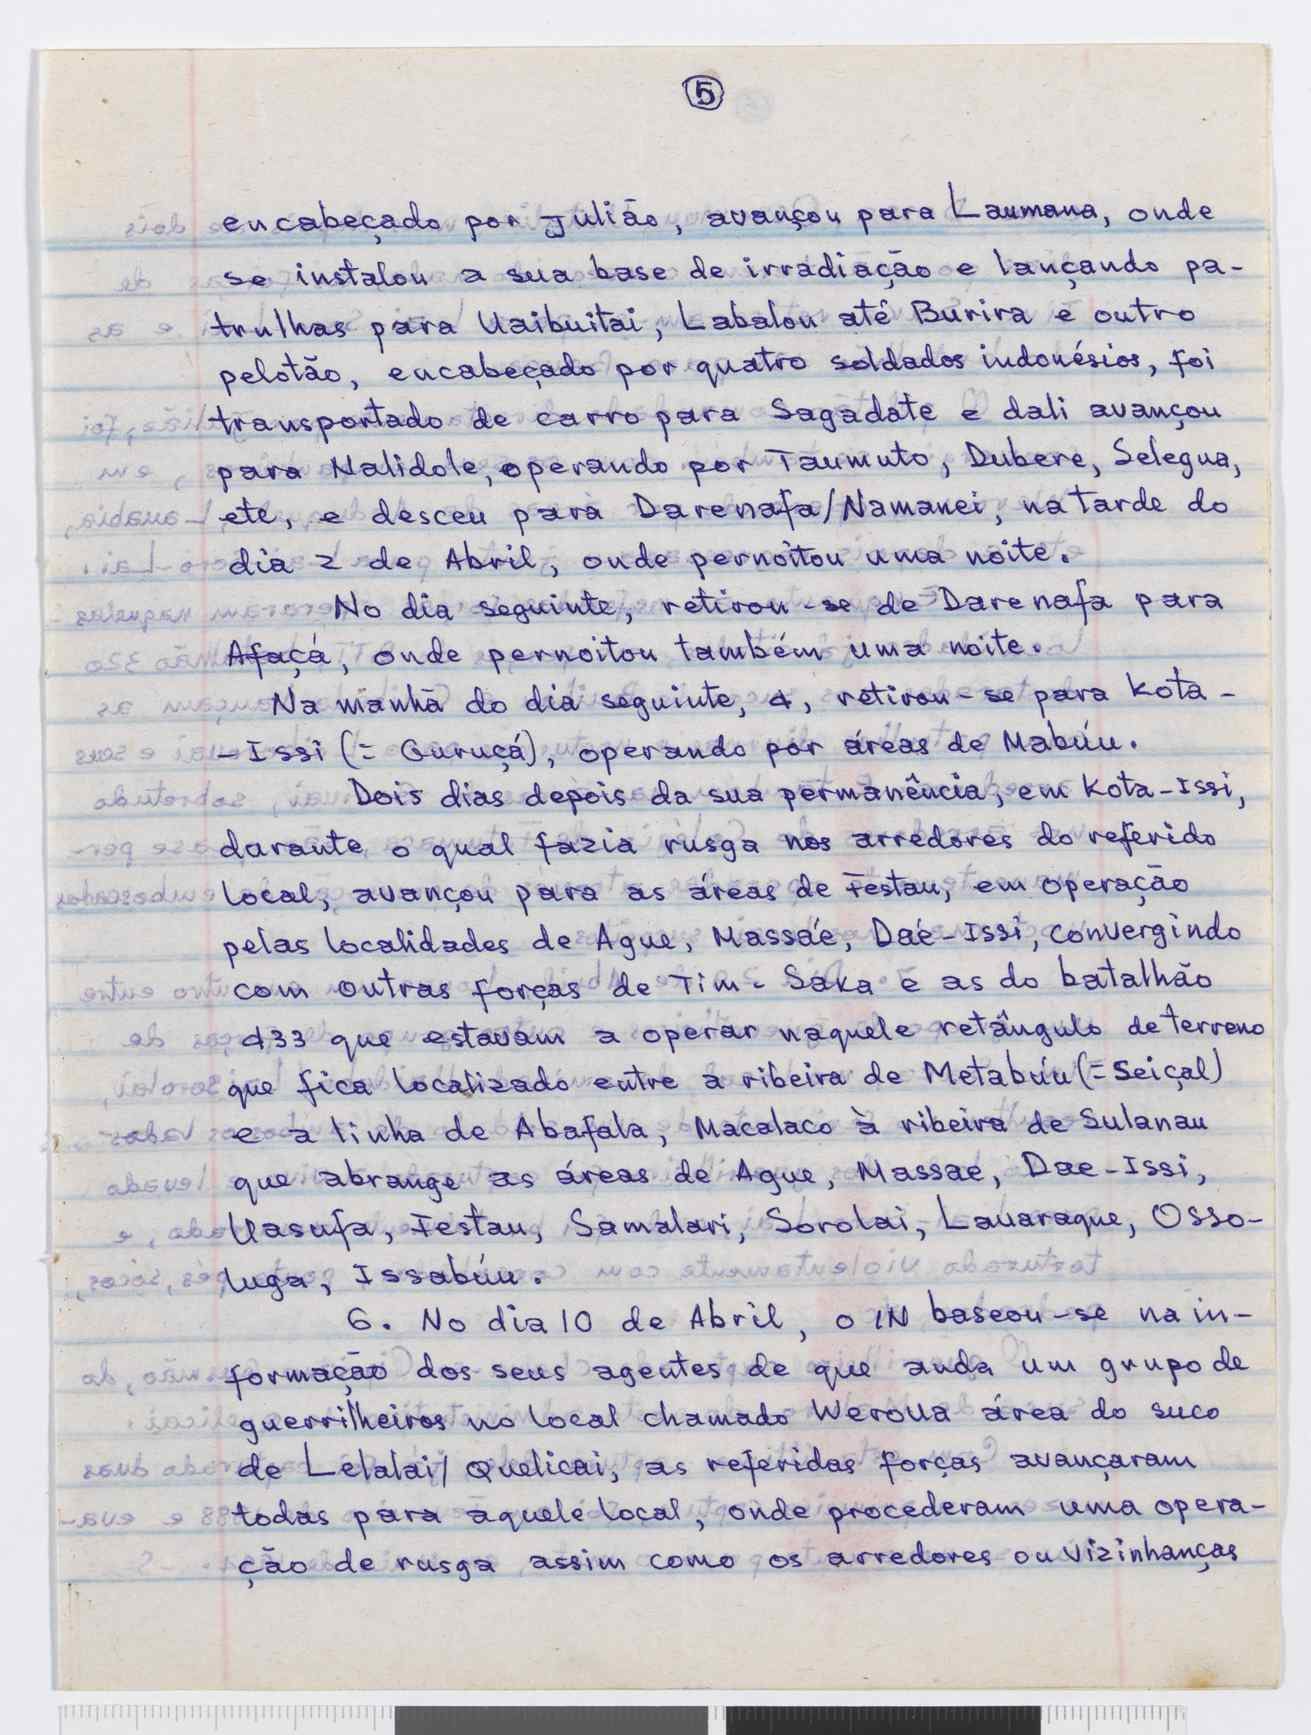 5
encabeçado por Julião, avançou para Laumana, onde
se instalou a sua base de irradiação e lançando pa-
trulhas para Uaibuitai, Labalou até Burira e outro
pelotão, encabeçado por quatro soldados indonésios, foi
transportado de carro para Sagadate e dali avançou
para Nalidole, operando por Taumuto, Dubere, Selegua,
etc, e desceu para Darenafa/Namanei, na tarde do
dia 2 de Abril, onde pernoitou uma noite.
No dia seguinte, retirou-se de Darenafa para
Afaçá, onde pernoitou também uma noite.
Na manhã do dia seguinte, 4, retirou-se para Kota-
-Issi (= Guruçá), operando por áreas de Mabúu.
Dois dias depois da sua permanência, em Kota-Issi,
durante o qual fazia rusga nos arredores do referido
local, avançou para as áreas de Festau, em operação
pelas localidades de Ague, Massaé, Daé-Issi, convergindo
com outras forças de Tim-Saka e as do batalhão
433 que estavam a operar naquele retângulo de terreno
que fica localizado entre a ribeira de Metabúu (= Seiçal)
e a linha de Abafala, Macalaco à ribeira de Sulanau
que abrange as áreas de Ague, Massae, Dae-Issi,
Uasufa, Festau, Samalari, Sorolai, Lauaraque, Osso-
luga, Issabúu.
6. No dia 10 de Abril, o IN baseou-se na in-
formação dos seus agentes de que anda um grupo de
guerrilheiros no local chamado Weroua área do suco
de Lelalai/Quelicai, as referidas forças avançaram
todas para aquele local, onde procederam uma opera-
ção de rusga assim como os arredores ou vizinhanças